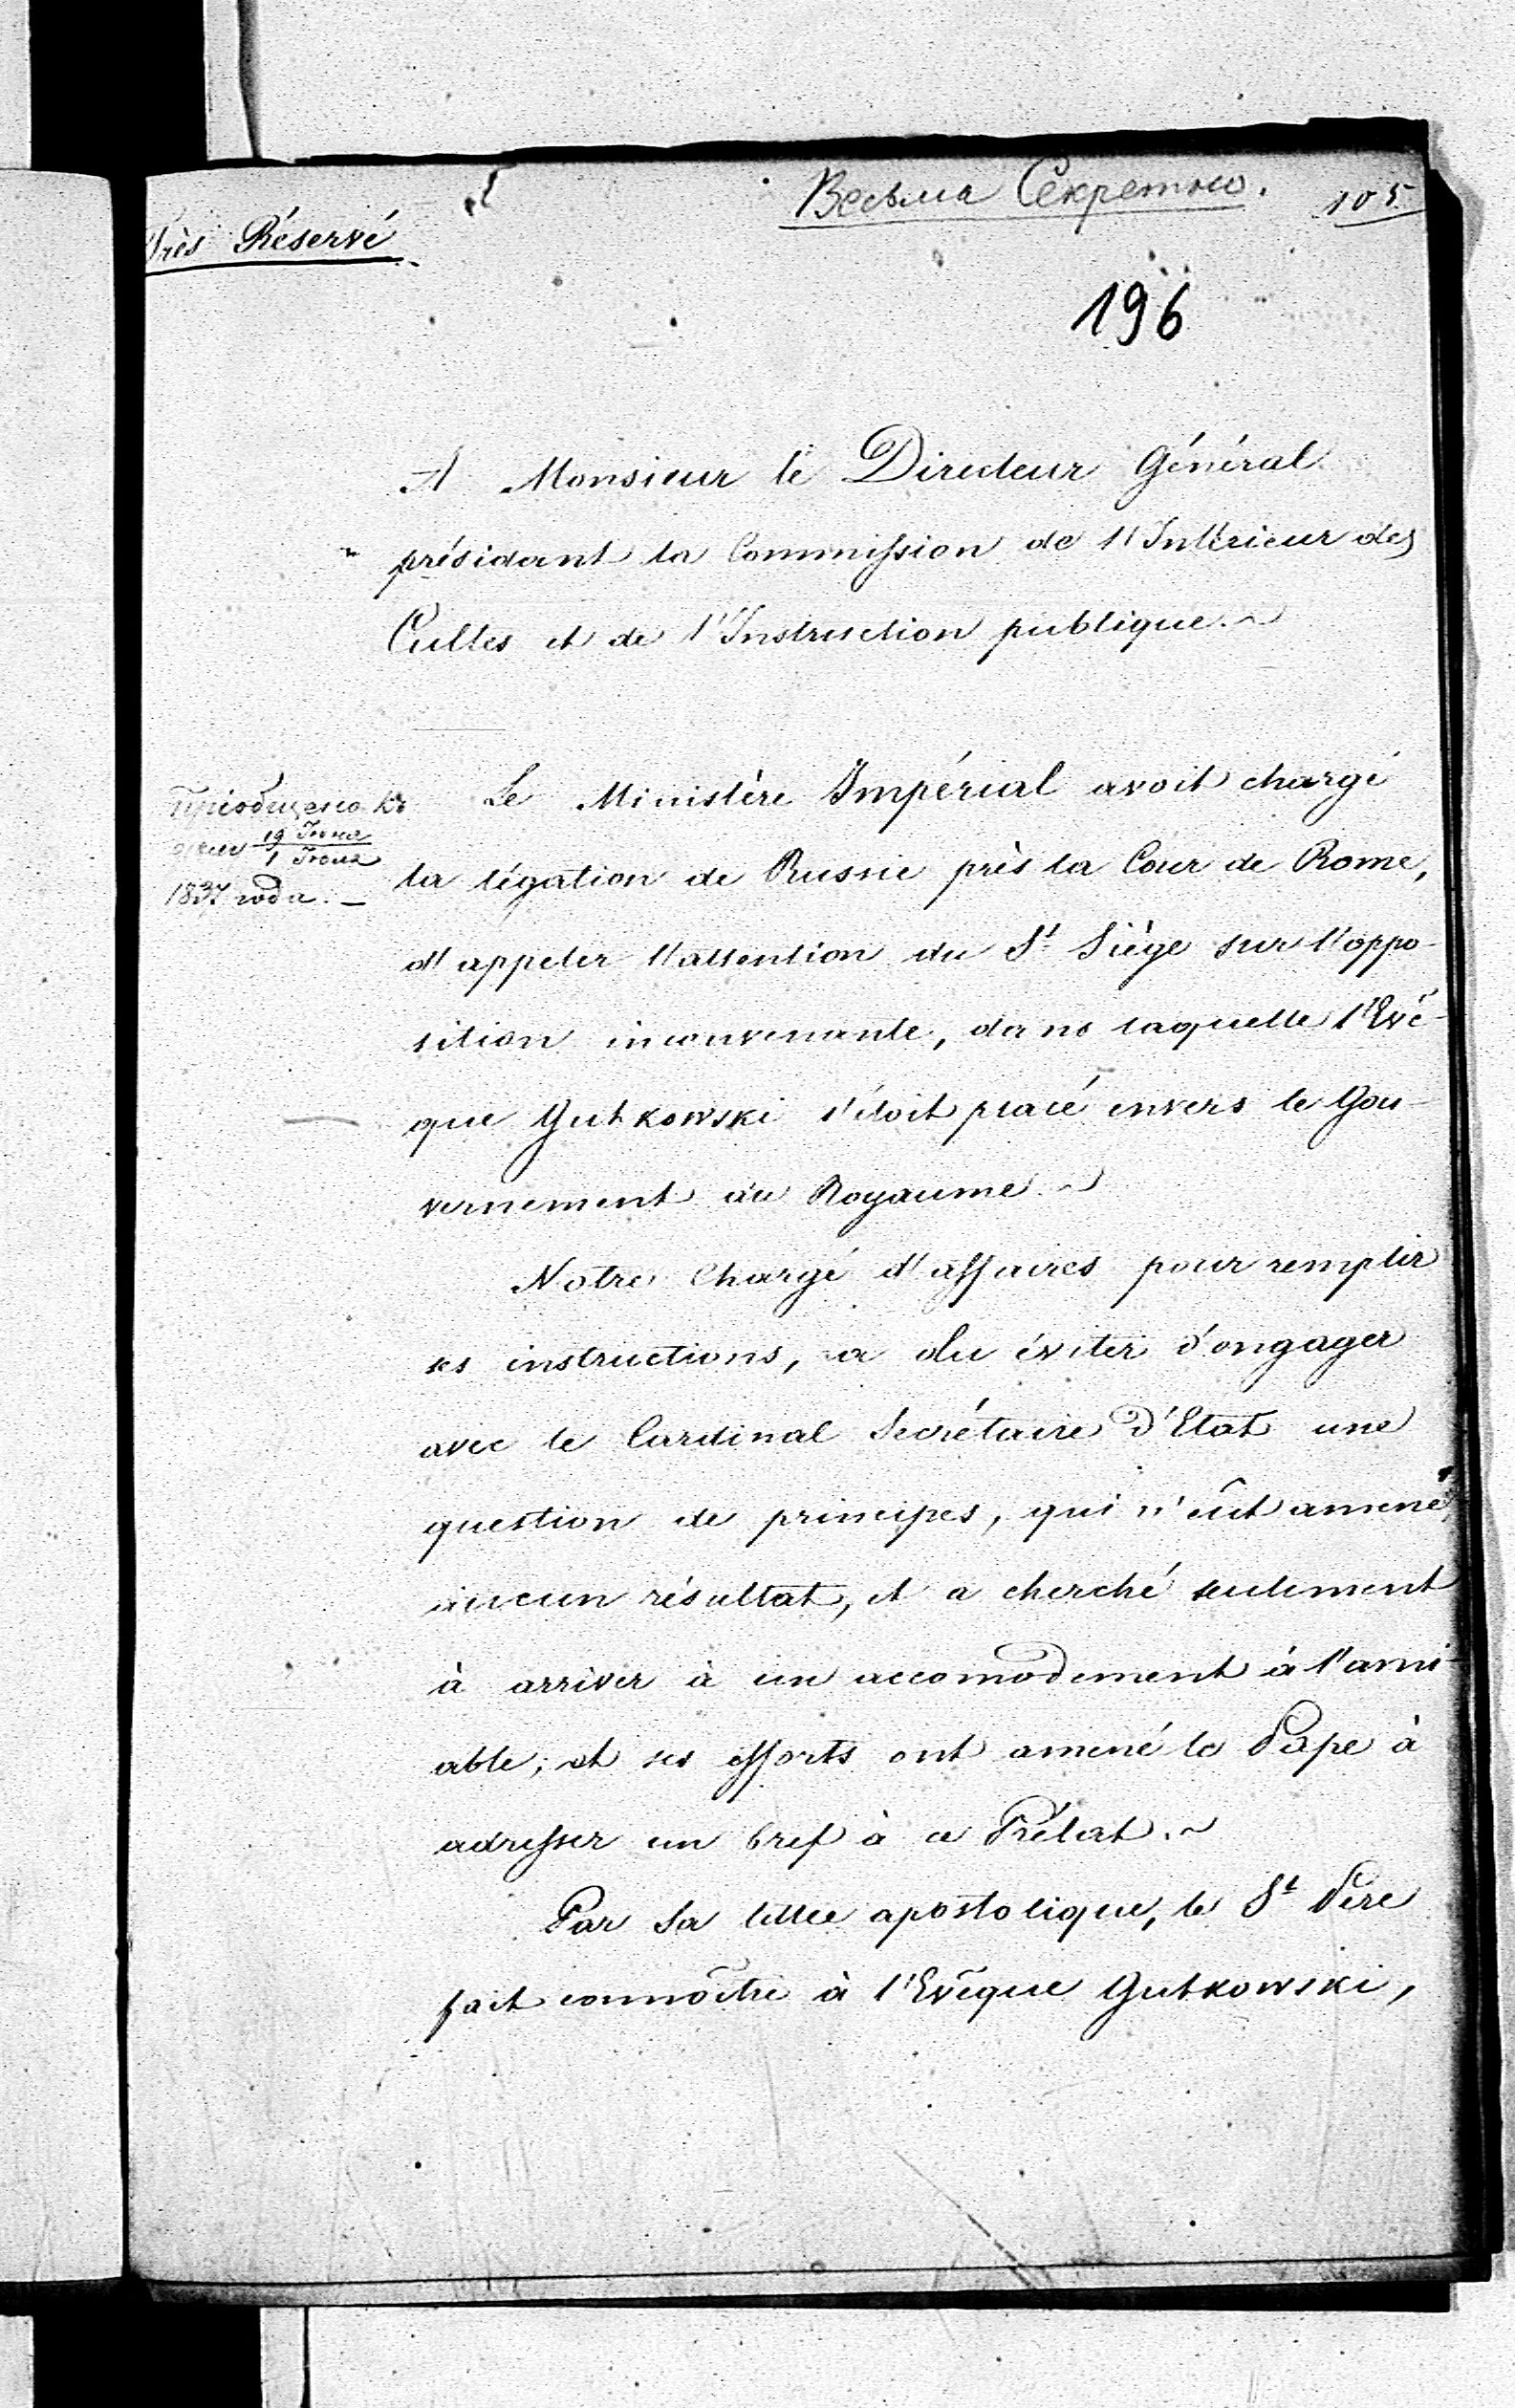 Весьма Секретно.
105
Très Réservé
196
A Monsieur le Directeur Général
présidant la Commission de l'Intérieur des
Cultes et de l'Instruction publique.
Пріобщено къ
19 Іюня
1 Іюля
1837 года.
Le Ministère Impérial avoit chargé
la légation de Russie près la Cour de Rome,
d'appeler l'attention du St Siège sur l'oppo-
sition inconvenante, dans laquelle l'Evê-
que Gutkowski s'étoit placé envers le Gou-
vernement du Royaume.
Notre Chargé d'affaires pour remplir
ses instructions, a du éviter d'engager
avec le Cardinal Secrétaire d'Etat une
question de principes, qui n'eût amené
aucun résultat, et a cherché seulement
à arriver à un accomodement à l'ami-
able; et ses efforts ont amené le Pape à
adresser un bref à ce Prélat.
Par sa lettre apostolique, le St Père
fait connoître à l'Evêque Gutkowski,